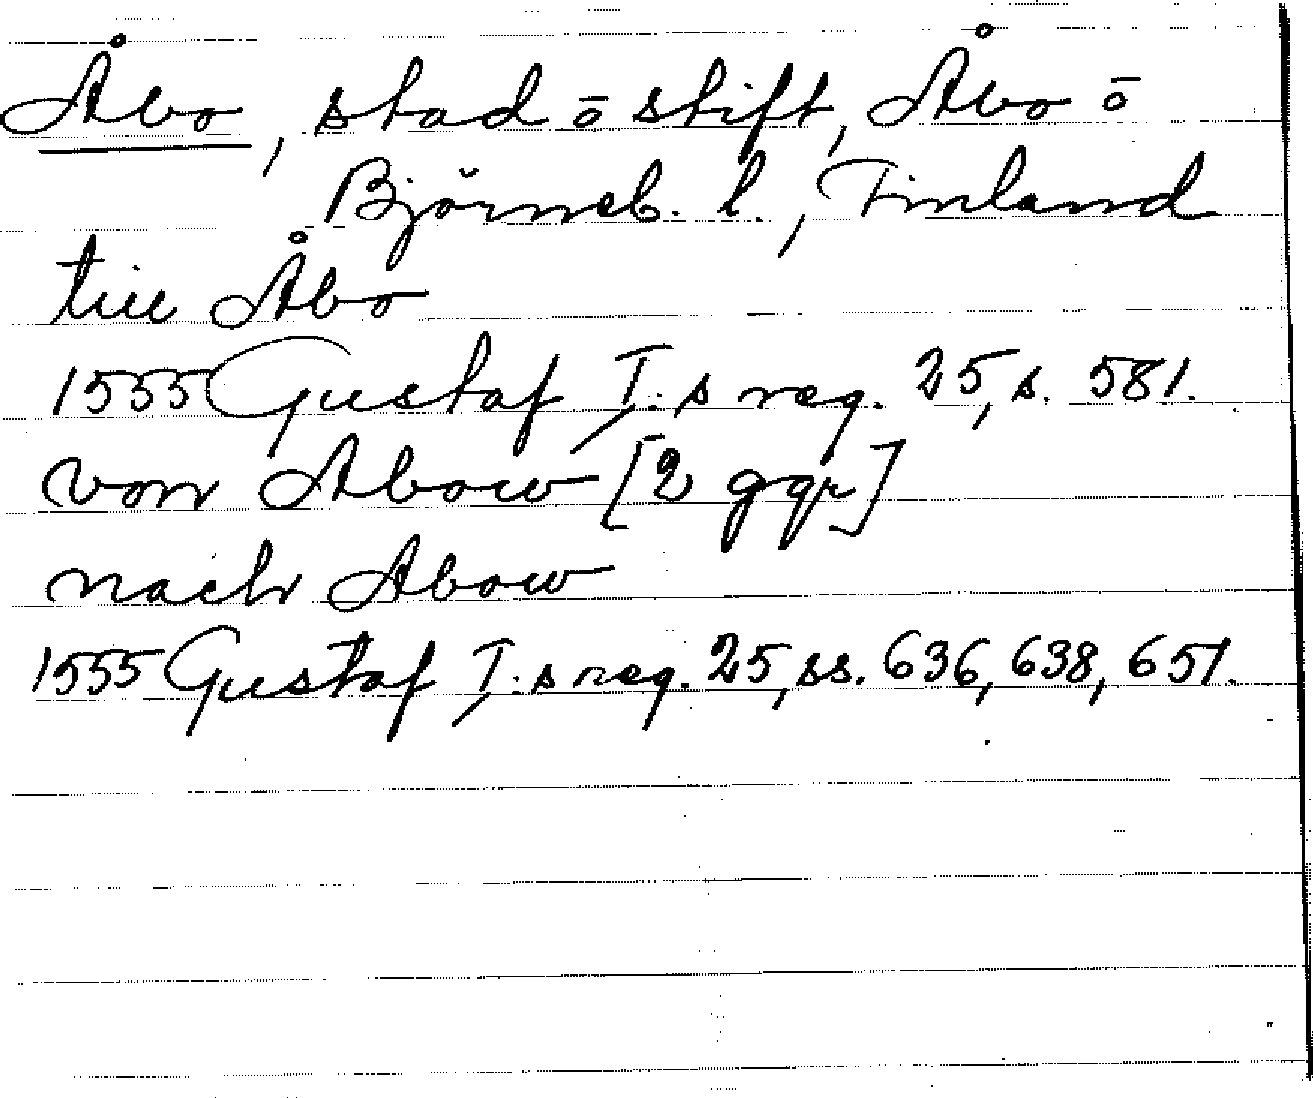 Åbo, stad ō stift, Åbo ō
Björneb. l., Finland
till Åbo
1555 Gustaf I:s reg. 25, s. 581.
von Abow [2 ggr]
nach Abow
1555 Gustaf I:s reg. 25, ss. 636, 638, 651.